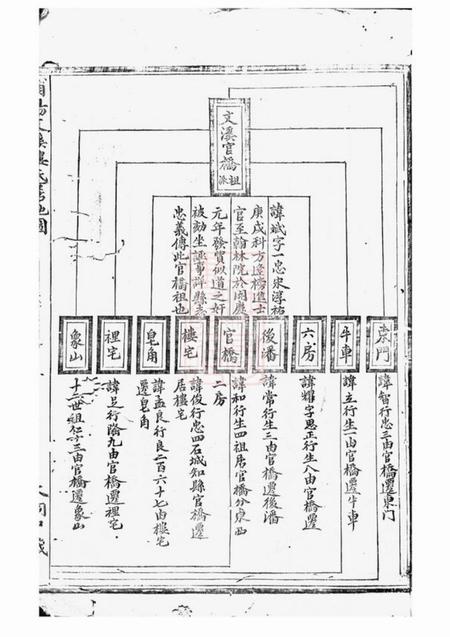 文溪官橋
祖派
諱斌字一忠宋淳祐
庚戌科方逢榜進士
官至翰林院於開慶
元年發賈似道之奸
被劾坐誣事詳縣志
忠義傳此官橋祖也
東門
牛車
六房
後潘
官橋
樓宅
皂角
裡宅
象山
諱智行忠三由官橋遷東門
諱立行生一由官橋遷牛車
諱耀字思正行生八由官橋遷
諱常行生三由官橋遷後潘
諱和行生四祖居官橋分東西
二房
諱俊行忠四石城知縣官橋遷
居樓宅
諱孟良行良二百六十七由樓宅
遷皂角
諱足行隆九由官橋遷裡宅
十二世祖仁三由官橋遷象山